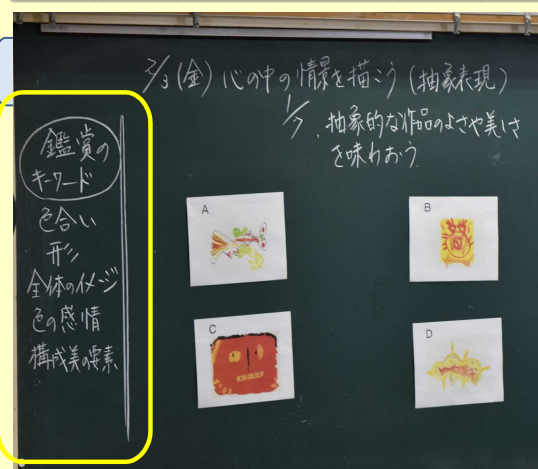 2/3(金) 心の中の情景を描こう(抽象表現)
1/7. 抽象的な作品のよさや美しさ
を味わおう.
鑑賞の
キーワード
色合い
形
全体のイメージ
色の感情
構成美の要素
A
B
C
D